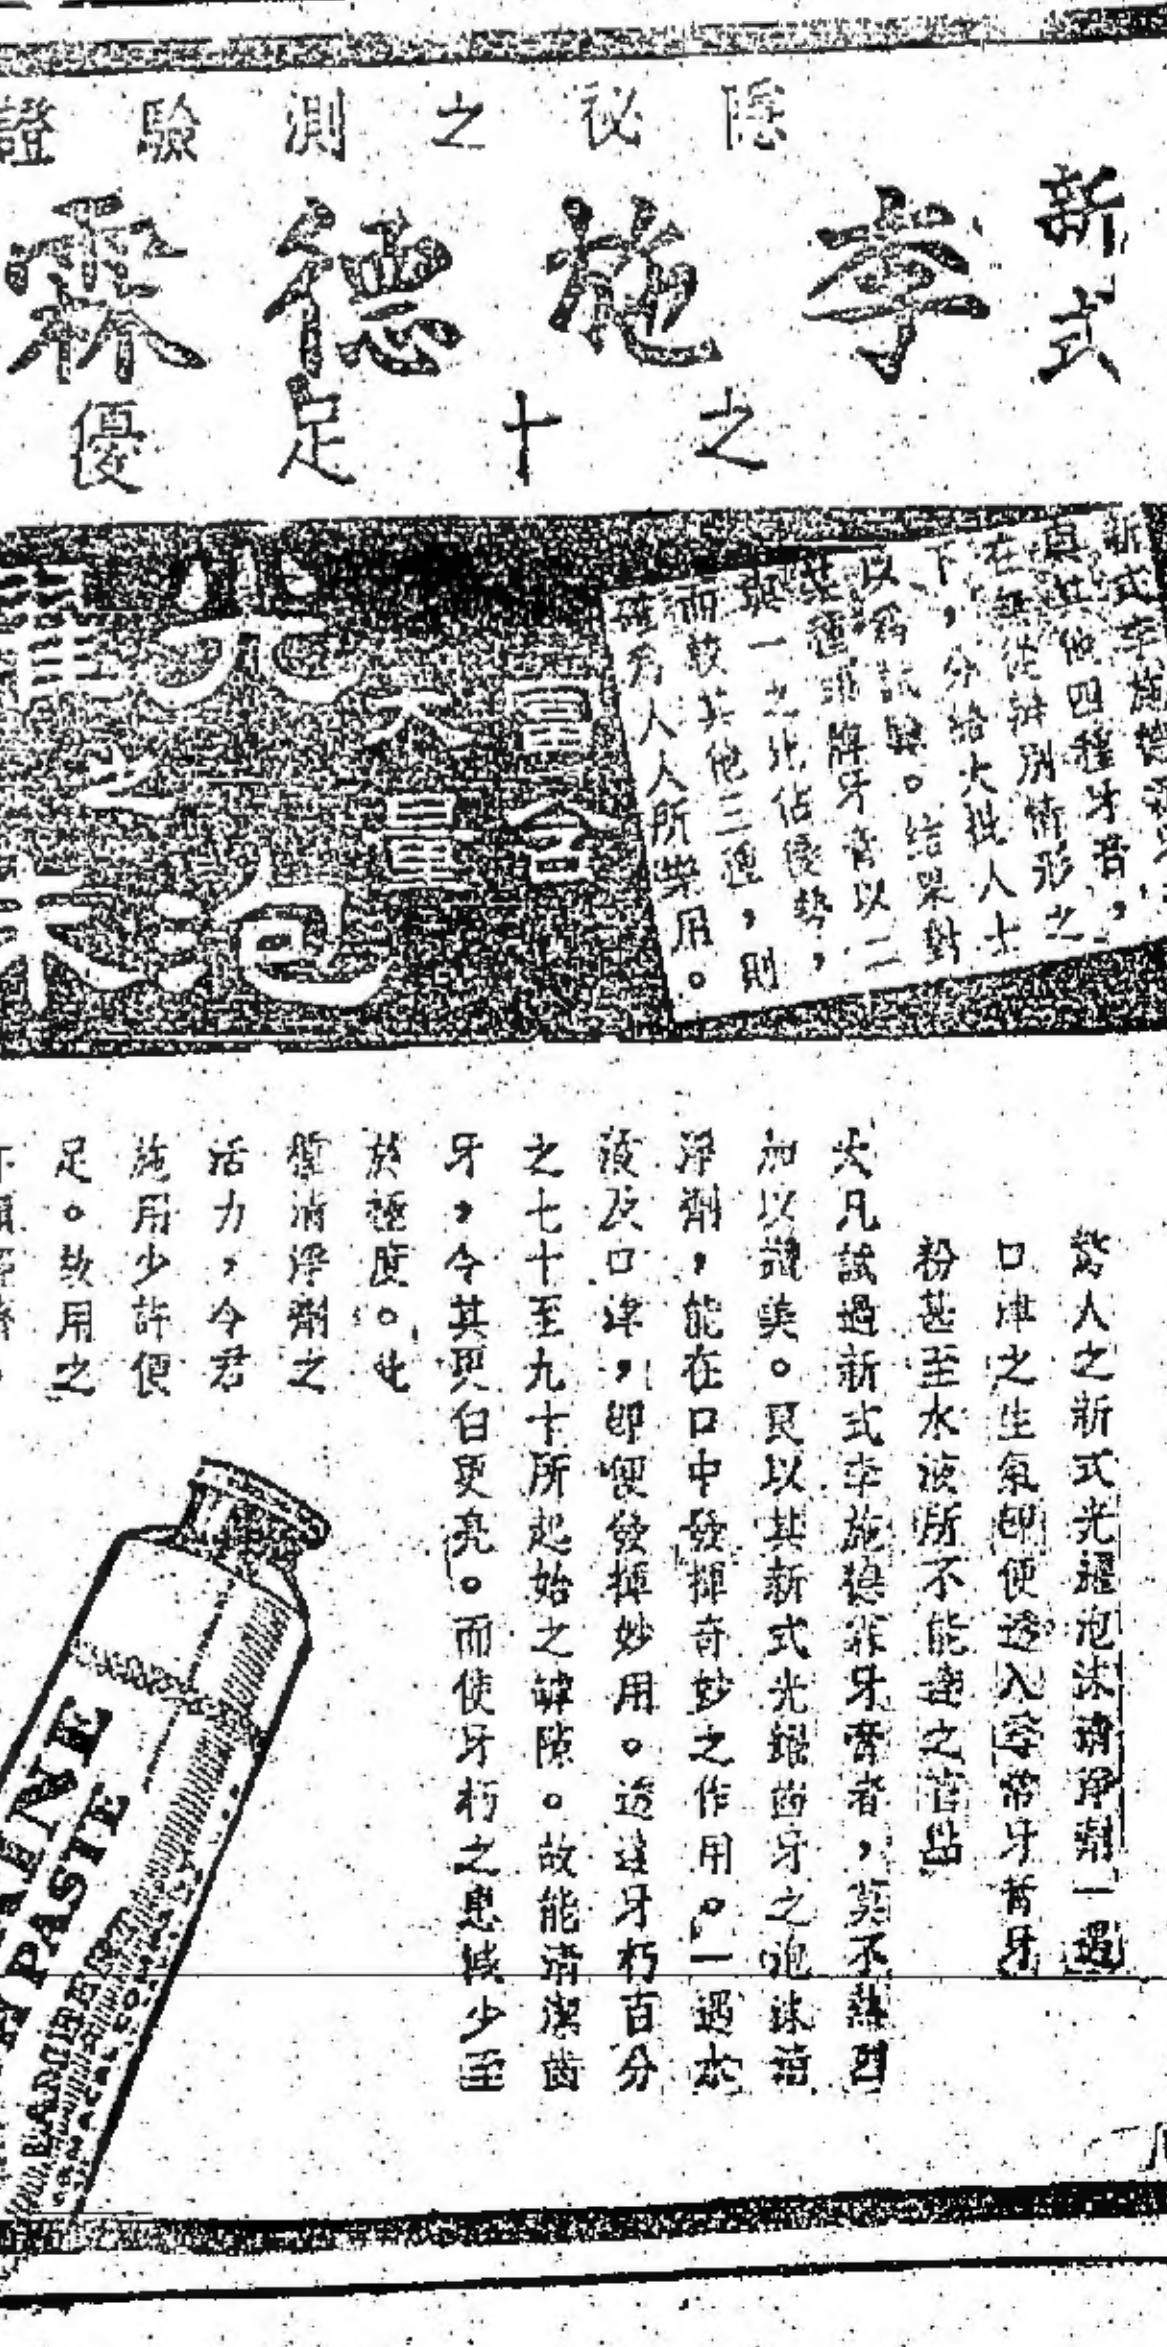 隱祕之測驗證
新式
李施德霖
之十足優
新式李施德霖
與其他四種牙膏，
在無從辨別情形之
下，分給大批人士
以爲試驗。結果對
某種非牌牙膏以二
與一之比佔優勢，
而較其他三種，則
確爲人人所樂用。
富含
大量
光耀之
泡沫
驚人之新式光耀泡沫清淨劑一遇
口津之生氣卽便透入尋常牙膏牙
粉甚至水液所不能達之舊點
大凡試過新式李施德霖牙膏者，莫不
加以讚美。良以其新式光耀齒牙之泡沫清
淨劑，能在口中發揮奇妙之作用。一遇水
液及口津，卽便發揮妙用。透達牙朽百分
之七十至九十所起始之罅隙。故能清潔齒
牙，令其更白更亮。而使牙朽之患減少至
於極度。此
種清淨劑之
活力，令君
施用少許便
足。故用之
INE
PASTE